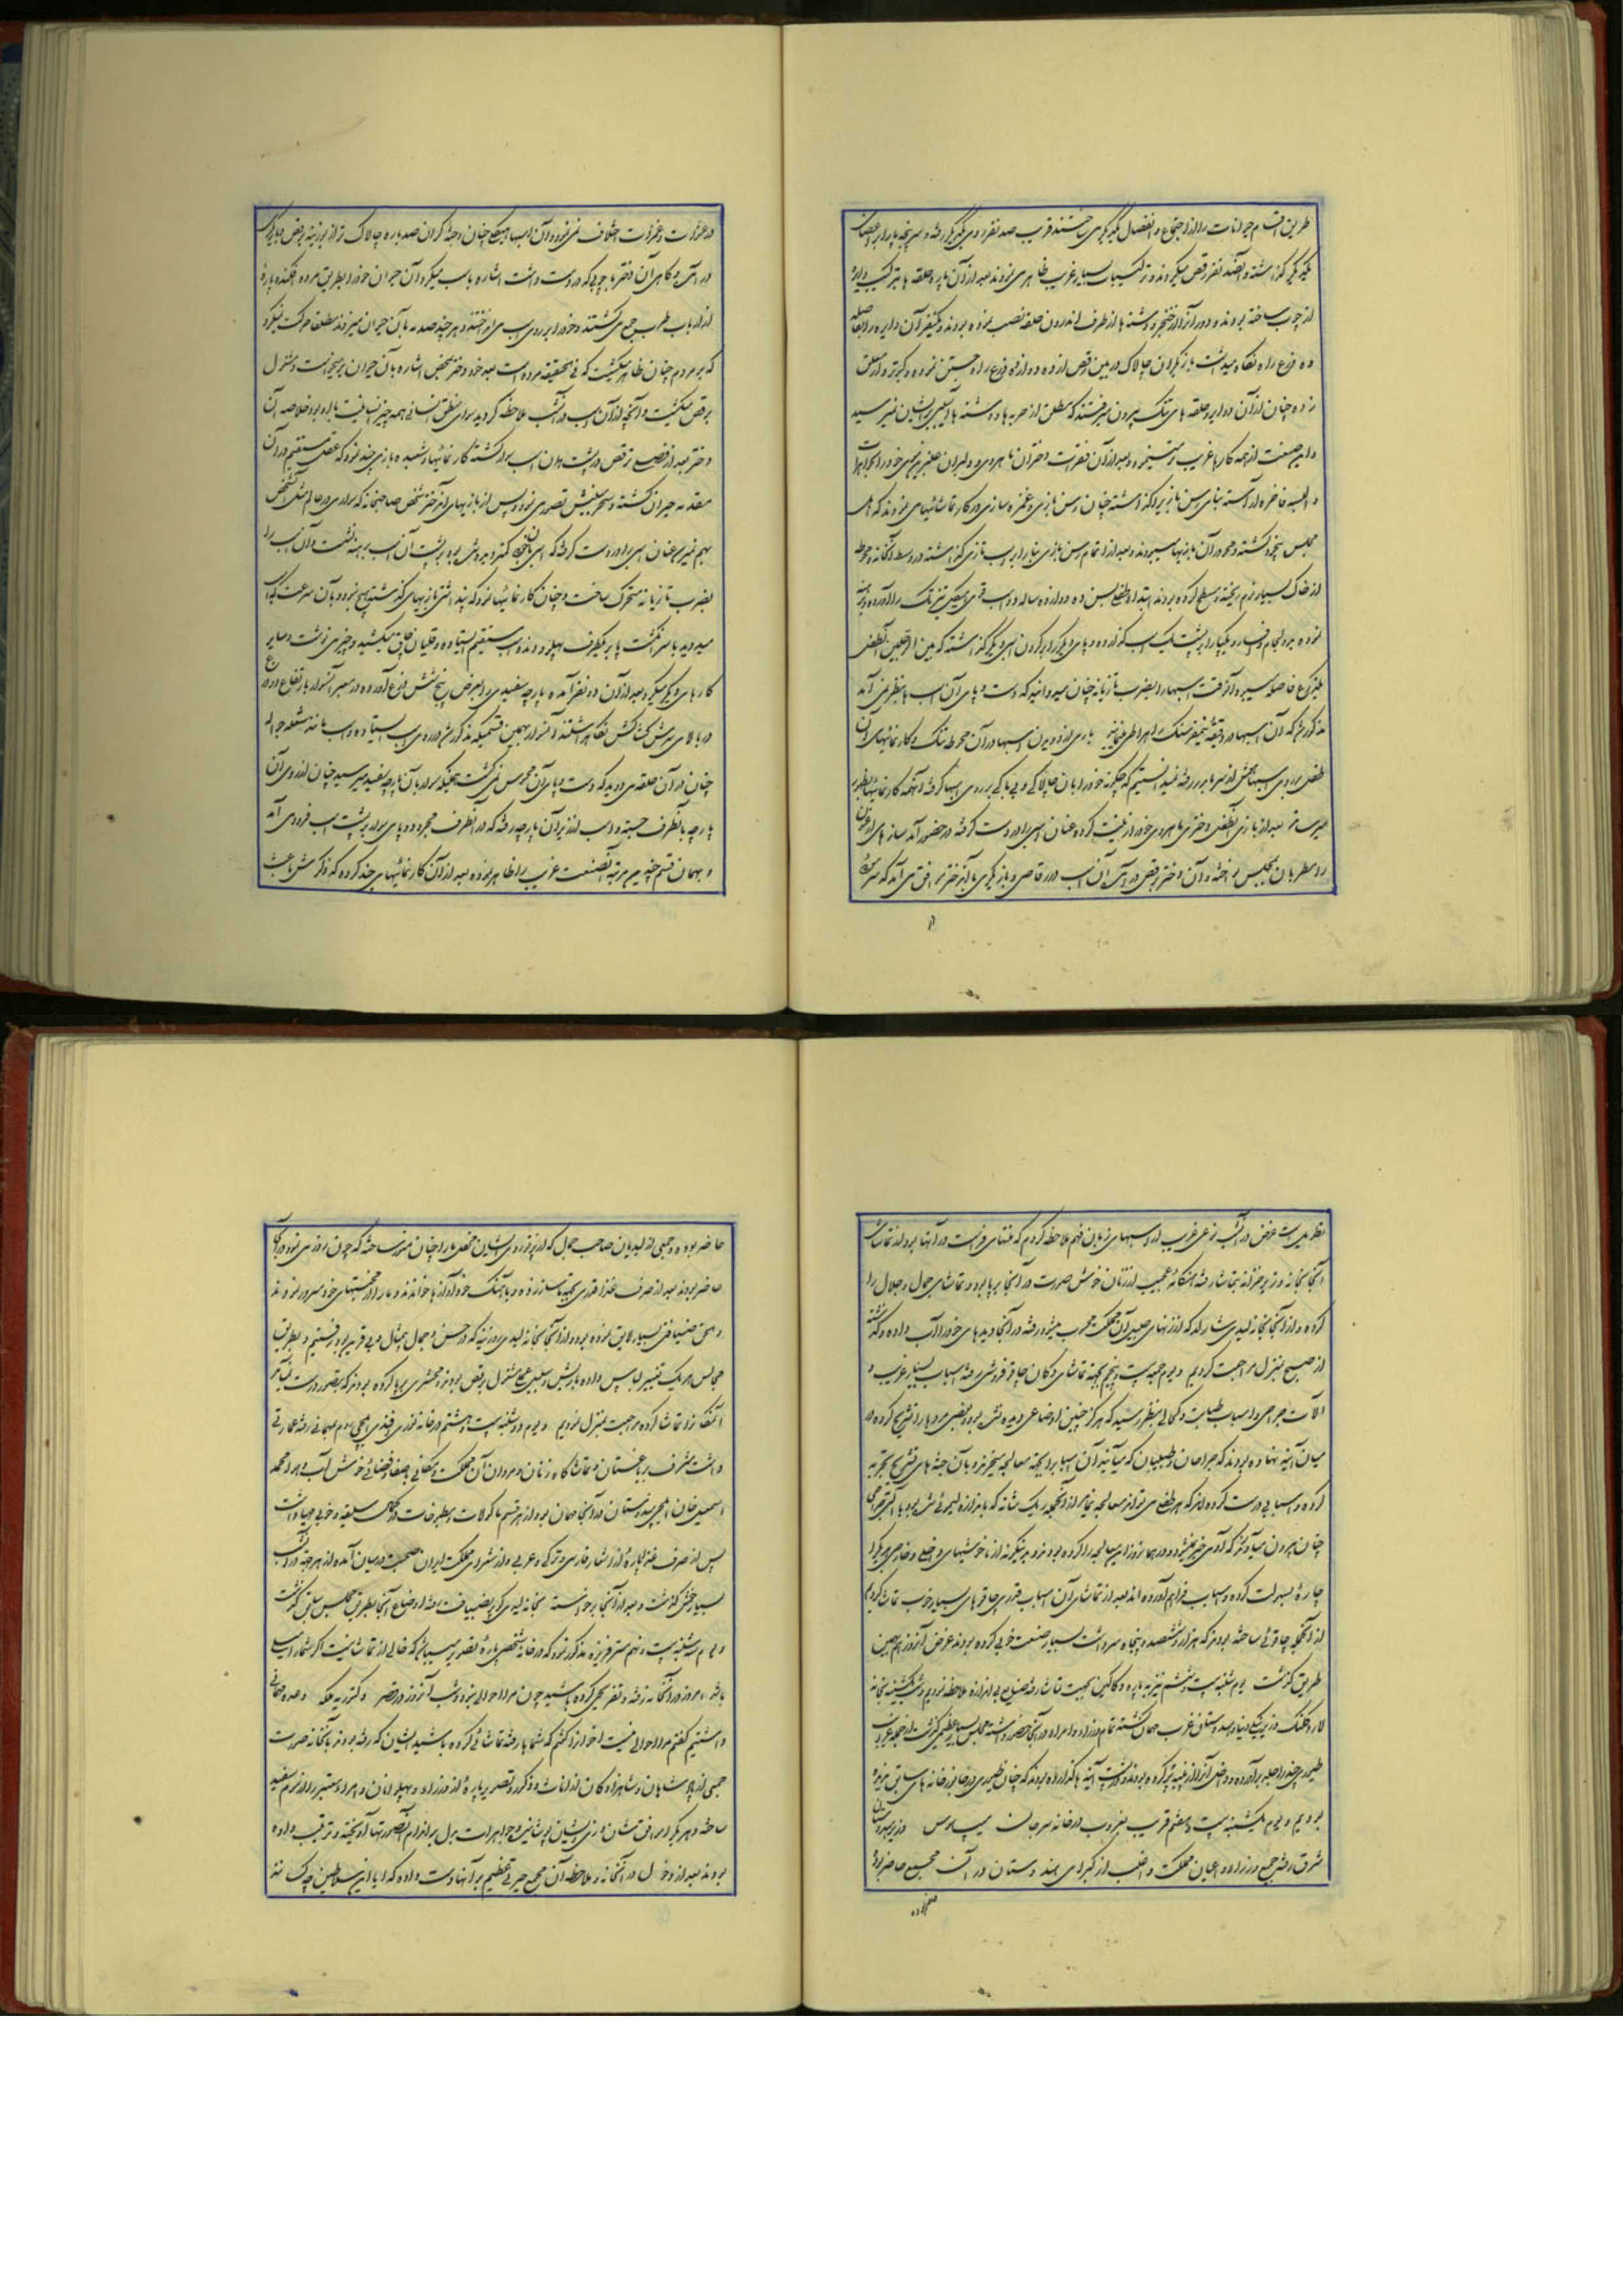 طریق اقسام حیوانات را از اجتماع و انفصال یکدیگر می ساختند قریب صد نفر روی یکدیگر رفته و سر پنجه پا را بر اعضای
یکدیگر گذاشته و آنصد نفر رقص میکردند و ترکیبات بسیار غریب ظاهر می نمودند بعد از آن پاره حلقه ها بترکیب دایره
از چوب ساخته بودند و دور آنرا از خنجر و دشنه ها از طرف اندرون حلقه نصب نموده بودند و یکنفر آن دایره را بفاصله
ده ذرع راه نگاه میداشت بازیگران چالاک در بین رقص از ده دوازده ذرع راه جستن نموده و کبوتروار معلق
زده چنان از آن دوایر و حلقه های تنگ بیرون میرفتند که مطلق از حربه ها و دشنه ها آسیبی بایشان نمیرسید
و این صنعت از همه کارها غریب تر می نمود و بعد از آن فقرات دختران ماهروی و دلبران عنبرین موی خود را بجواهرات
و البسه فاخره آراسته بنای رسن بازی را گذاشته چنان رسن بازی و غمزه سازی در کار تماشائیها می نمودند که اهل
مجلس بیخود گشته و محو در آن بازیها میبودند و بعد از اتمام رسن بازی بنا را بر اسب تازی گذاشته در وسط آنخانه محوطه
از خاک بسیار نرم ریخته و مسطح کرده بودند ابتدا طفلی بسن ده دوازده ساله دو اسب قوی هیکل تیزتک را آورده و برهنه
نموده بدون لجام و افسار و یکپا را بر پشت یک اسب گذارده و پای دیگر را بر گردن اسب دیگر گذاشته که بین الرجلین آنطفل
یکذرع فاصله میبود آنوقت اسبها را بضرب تازیانه چنان میدوانید که دست و پای آن اسب ها بنظر نمی آمد
مذکور شد که آن اسبها در دقیقه نیمفرسنگ راه را طی مینمایند باری از دویدن اسبها در آن محوطه تنگ و کارنمائیهای آن
طفل بر روی اسبها هوش از سر ما بدر رفته نمیدانستیم که چگونه خود را بآن چالاکی و بی باکی بر روی اسبها گرفته و آنهمه کارنمائیها بظهور
میرساند بعد از بازی آنطفل دختری ماهروی خود را زینت کرده و عنان اسبی را در دست گرفته در حضور آمد سازهای ارغنون
را مطربان مجلس نواخته و آن دختر برقص در آمده آن اسب در رقاصی و بازیگری با آندختر موافق می آمد که سر موئی
از
در حرکات و سکنات اختلاف نمی نمود و آن اسب با هیکل چنان و جثه گران صد باره چالاک تر از بوزینه برقص و بازی
در آمده گاهی آن دختر با چوبی که در دست داشت اشاره باسب میکرد آن حیوان خود را بطریق مرده افکنده پاره
از ارباب طرب جمع می گشتند و خود را بر روی اسب می انداختند و هر چند صدمه بآن حیوان میزدند مطلقا حرکت نمیکرد
که بر مردم چنان ظاهر میگشت که فی الحقیقه مرده است بعد خود دختر بمحض اشاره بآن حیوان برمیخواست و مشغول
برقص میگشت و آنچه از آن اسب در آنشب ملاحظه گردید سوای نطق انسانی همه چیز انسانیت با او بود خلاصه آن
دختر بعد از فصلی رقص در پشت همان اسب سوار گشته کارنمائیها و شعبده بازی چند نمود که عقل مستقیم در آن
مقدمه حیران گشته و سحر مبینش تصور می نمود و پس از بازیهای آندختر شخص صاحبخانه که سواری در عالم مثل آنشخص
بهم نمیرسد عنان اسبی را در دست گرفته که اسبی بآن بزرگی کمتر دیده می شد و بر پشت آن اسب برهنه نشست و آن اسب را
بضرب تازیانه متحرک ساخت و چنان کارنمائیها نمود که پنداشتی بازیهای گذشته هیچ نبود و بآن سرعت که اسب
میدوید با سر انگشت پا بر یکطرف پهلو و دنده اسب مستقیم ایستاده و قلیان چاق میکشید و چیزی مینوشت و سایر
کارهای دیگر میکرد و بعد از آن دو نفر آمده پارچه سفیدی را بعرض پنج شش ذرع آورده و در معبر آنسوار بارتفاع دو ذرع
در بالای سرش کشاکش نگاه داشتند آنسوار بهمین قسمیکه مذکور شد در روی اسب ایستاده و اسب مانند شعله جواله
چنان در آن حلقه می دوید که دست و پای آن محسوس نمی گشت همینکه سوار بآن پارچه سفید میرسید چنان از روی آن
پارچه بآنطرف جسته و اسب از زیر آن پارچه رفته که در آنطرف مجددا دو پای سوار بر پشت اسب فرود می آمد
و بهمان قسم چندین مرتبه آنصنعت غریب را ظاهر نموده بعد از آن کارنمائیهای چند کرده که ذکرش باعث
تطویل است غرض در آنشب نوعی غریب از اسبهای زبان فهم ملاحظه کردم که منتهای فراست در آنها بود از تماشای
آنجا بخانه وزیر خزانه بتماشا رفته هنگامه عجیب از زنان خوش صورت در آنجا برپا بود و تماشای جمال و جلال را
کرده و از آنجا بخانه لیدی که از زنهای آن مملکت محسوب میشود رفته در آنجا دیدهای خود را آب داده و گذشته
از صبح بمنزل مراجعت کردیم و یوم جمعه بیست و پنجم بجهة تماشای دکان چاقو فروشی رفته اسباب بسیار غریب و
آلات جراحی و اسباب طبابت و کحالی بنظر رسید که هرگز چنین اوضاعی دیده نشده بود و بعضی مردها را تشریح کرده در
میان آینه نهاده بودند که جراحان و طبیبان که میآیند آن اسبها را بجهة معالجه میخرند و بآن جثه های تشریح تجربه
کرده و اسبابی درست کرده اند که هر طفلی می تواند معالجه نماید از آنجمله ریگ مثانه که باندازه لیموئی شده بود بآلتی جراحی
چنان بیرون میآورند که آدمی خبر نمیشود و در همانروز این معالجه را کرده بودند و بدینگونه از ناخوشیهای داخلی و خارجی هر یک را
چاره بسهولت کرده و اسباب فراهم آورده اند بعد از تماشای آن اسباب قدری چاقوهای بسیار خوب تماشا کردیم
از آنجمله چاقوئی ساخته بودند که هزار و ششصد و پنجاه سر داشت بسیار صنعت خوبی کرده بودند غرض آنروز هم بهمین
طریق گذشت یوم شنبه بیست و ششم نیز به پاره دکاکین بجهت تماشا رفته صنایع بی اندازه ملاحظه نمودیم و شب یکشنبه بخانه
وزیر ینگی دنیا و هندوستان غرب مهمان گشته تمام وزراء و امراء در آنجا حضور داشته مجلس بسیار عظیمی گذشت از جمله غرایب
طیوری چند را حیله برآورده و داخل آنرا از پنبه پر کرده بودند و در پشت آینه ها گذارده بودند که چنان طیوری در خانه های سابق ندیده
بودیم و یوم یکشنبه بیست و هفتم قریب بغروب در خانه سرجان وزیر هندوستان
شرق رفته جمیع وزراء و اعیان مملکت و اغلب از کبرای هندوستان در آن مجمع حاضر بوده
حاضر بوده و جمعی از لیدیان صاحب جمال که از پرتو روی ایشان محفل ما را چنان منور ساخته که چون روز می نمود در آنجا
حاضر بودند بعد از صرف غذا قدری بجهة ما ساز زده و بآهنگ خود آوازها خواندند و ما را از محبتهای خود مسرور نمودند
و الحق ضیافتی بسیار لایق نموده بود و از آنجا بخانه لیدی روزینه که در حسن و جمال بیمثال و بی قرینه بود رفتیم و بطریق
مجالس هر یک تغییر لباس داده بارایش و اسلوبی عجب مشغول برقص بودند و محشری برپا کرده بودند که بتصور درست نیاید
آنها را تماشا کرده مراجعت بمنزل نمودیم و یوم دوشنبه بیست و هشتم در خانه نوری افندی ایلچی روم مهمانی رفته عمارتی
داشت مشرف بر باغستان و تماشاگاه زنان و مردان آن مملکت و مکانی باصفا و فضائی خوش آب و هوا محمد
اسمعیل خان ایلچی هندوستان در آنجا مهمان بود از هر قسم ماکولات و مطبوخات در کمال سلیقه و خوبی مهیا داشت
پس از صرف غذا پاره از اشعار فارسی و ترکی و عربی و از شعرای مملکت ایران صحبت در میان آمده از هر جهة در آنشب
بسیار خوش گذشت و بعد از آنجا برخواسته بخانه لیدی که بضیافت رفته اوضاع آنجا بطریق مجلس سابق گذشت
و یوم سه شنبه بیست و نهم مستر فریزر مذکور نمود که در خانه شخصی پاره تصویر میسازند که خالی از تماشا نیست اگر شما را میلی
باشد امروز در آنجا رفته و تفرجی کرده باشید چون مرا احوالی نبود و شب آنروز در قصر دکتوریه ملکه وعده مهمانی
داشتیم گفتم مرا احوالی نیست اخوان را گفتم که شما ها رفته تماشائی کرده باشید ایشان که رفته بودند بآنخانه صورت
جمعی از پادشاهان و شاهزادگان از اناث و ذکور و تصویر پاره از وزراء و پهلوانان و امراء معتبر را از موم سفید
ساخته و هر یک را موافق شان و زی ایشان پوشانیده و جواهرات بدل بر اندام آنصورتها آویخته و ترتیب داده
بودند بعد از دخول در آنخانه و ملاحظه آن مجمع حیرتی عظیم بر آنها دست داده که آیا این سلاطین چه کسانند